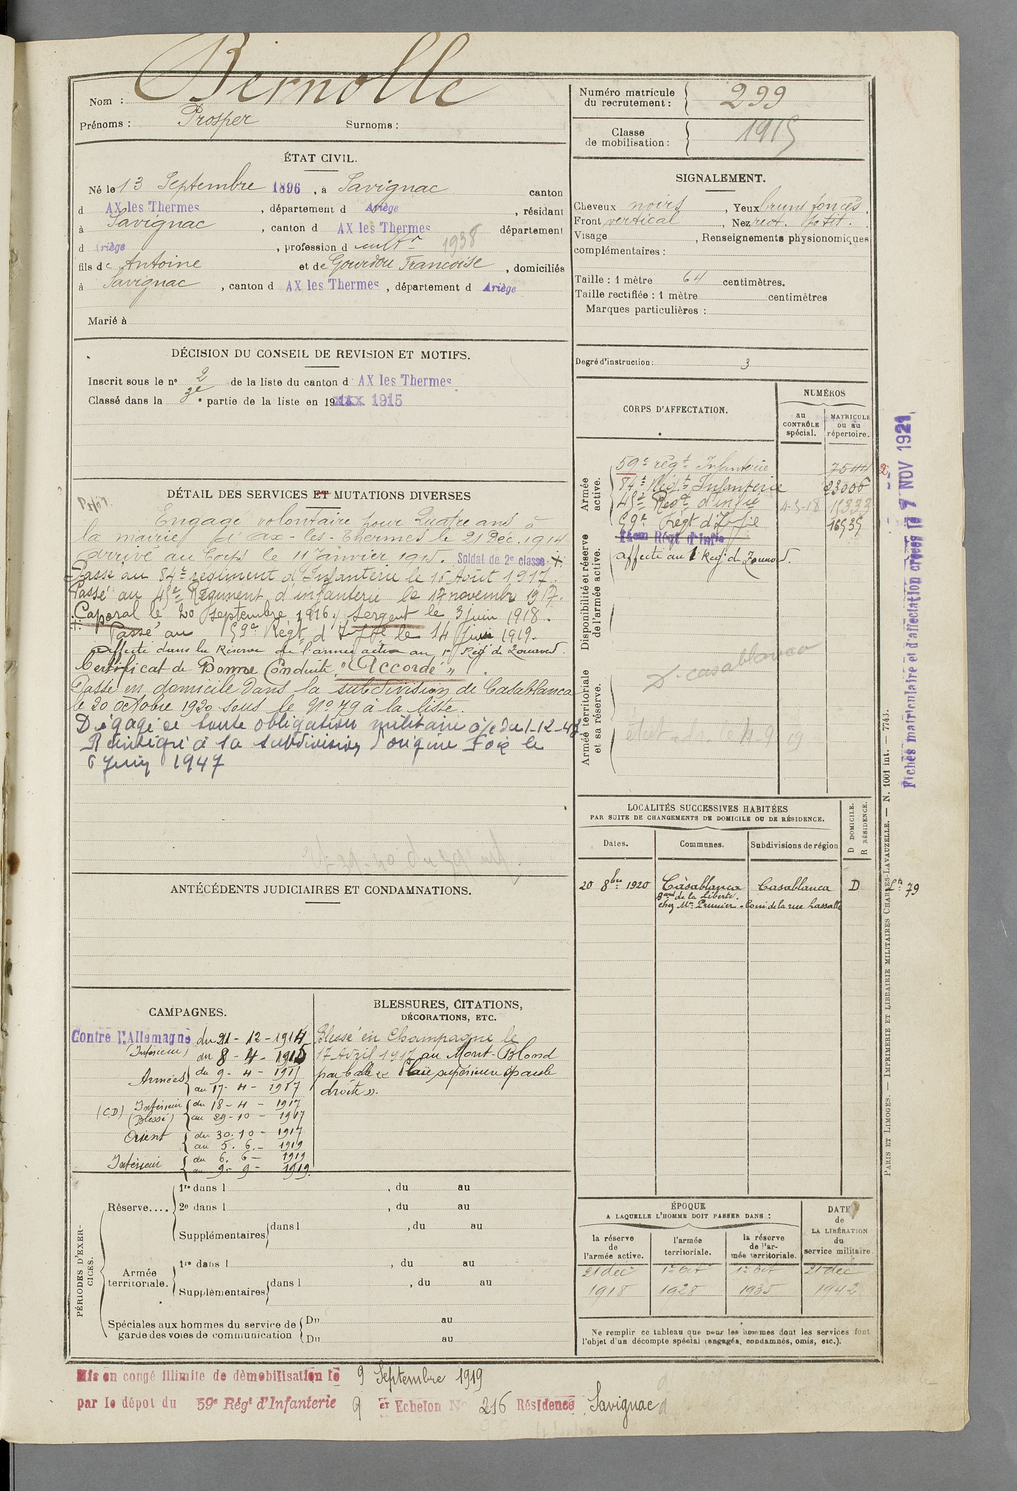 Nom : Bernolle
Prénoms : Prosper Surnoms :
Numéro matricule du recrutement : 299
Classe de mobilisation : 1915
ÉTAT CIVIL.
Né le 13 Septembre 1896, à Savignac canton
d AX les Thermes, département d Ariège, résidant
à Savignac, canton d AX les Thermes département
d Ariège, profession d cultr 1938
fils de Antoine et de Gourdou Francoise, domiciliés
à Savignac, canton d AX les Thermes, département d Ariège
Marié à
SIGNALEMENT.
Cheveux noirs, Yeux bruns foncés,
Front vertical, Nez rect. petit.
Visage , Renseignements physionomiques
complémentaires :
Taille : 1 mètre 64 centimètres.
Taille rectifiée : 1 mètre centimètres
Marques particulières :
Degré d'instruction : 3
DÉCISION DU CONSEIL DE REVISION ET MOTIFS.
Inscrit sous le no 2 de la liste du canton d AX les Thermes
Classé dans la 3e partie de la liste en 19 1915
DÉTAIL DES SERVICES ET MUTATIONS DIVERSES
Engagé volontaire pour Quatre ans à
la mairie d'Ax-les-Thermes le 21 Déc. 1914
Arrivé au Corps le 11 Janvier 1915. Soldat de 2e classe
Passé au 84e régiment d'Infanterie le 16 Août 1917.
Passé au 48e Régiment d'infanterie le 17 novembre 1917.
Caporal le 20 Septembre 1916. Sergent le 3 juin 1918.
Passé au 59e Régt d'Inftie le 14 Juin 1919.
Affecté dans la Réserve de l'armée active au 1r Régt de Zouaves.
Certificat de Bonne Conduite "Accordé"
Passé en domicile dans la subdivision de Casablanca
le 20 octobre 1920 sous le No 79 à la liste.
Dégagé de toute obligation militaire à/c du 1-12-45
Réintégré à la subdivision d'origine Foix le
6 Juin 1947
CORPS D'AFFECTATION.
NUMÉROS
au CONTRÔLE spécial.
MATRICULE ou au répertoire.
Armée active.
59e régt Infanterie 7544
84e Régt Infanterie 23006
48e Régt d'infie 4-3-18 15333
59e Régt d'Infie 16535
Disponibilité et réserve de l'armée active.
affecté au 1 Regt de Zouaves.
Armée territoriale et sa réserve.
D. casablanca
Fiches matriculaire et d'affectation créées le 7 NOV 1921
LOCALITÉS SUCCESSIVES HABITÉES
PAR SUITE DE CHANGEMENTS DE DOMICILE OU DE RÉSIDENCE.
Dates. Communes. Subdivisions de région
D DOMICILE.
R RÉSIDENCE.
20 8bre 1920 Casablanca Casablanca D Ln 79
Bard de la Liberté.
chez Mr Prunier, coin de la rue Lassalle
ANTÉCÉDENTS JUDICIAIRES ET CONDAMNATIONS.
CAMPAGNES.
Contre l'Allemagne du 21-12-1914
(Intérieur) au 8-4-1915
Armées du 9-4-1915
au 17-4-1917
(C.D) Intérieur du 18-4-1917
(Blessé) au 29-10-1917
Orient du 30-10-1917
au 5-6-1919
Intérieur du 6-6-1919
au 9-9-1919
BLESSURES, CITATIONS,
DÉCORATIONS, ETC.
Blessé en Champagne le
17 Avril 1917 au Mont-Blond
par balle "Plaie supérieure épaule
droite".
PÉRIODES D'EXERCICES.
Réserve.... 1re dans l , du au
2e dans l , du au
Supplémentaires dans l , du au
Armée territoriale. 1re dans l , du au
Supplémentaires dans l , du au
Spéciales aux hommes du service de garde des voies de communication Du au
Du au
ÉPOQUE
A LAQUELLE L'HOMME DOIT PASSER DANS :
la réserve de l'armée active.
l'armée territoriale.
la réserve de l'armée territoriale.
DATE de LA LIBÉRATION du service militaire
21 déc 1918
1r Oct 1928
1r Oct 1935
21 déc 1942
Ne remplir ce tableau que pour les hommes dont les services font
l'objet d'un décompte spécial (engagés, condamnés, omis, etc.).
PARIS ET LIMOGES. — IMPRIMERIE ET LIBRAIRIE MILITAIRES CHARLES-LAVAUZELLE. — N. 1001 int. — 7743.
Mis en congé illimité de démobilisation le 9 Septembre 1919
par le dépot du 59e Régt d'Infanterie 9 er Echelon No 216 Résidence Savignac